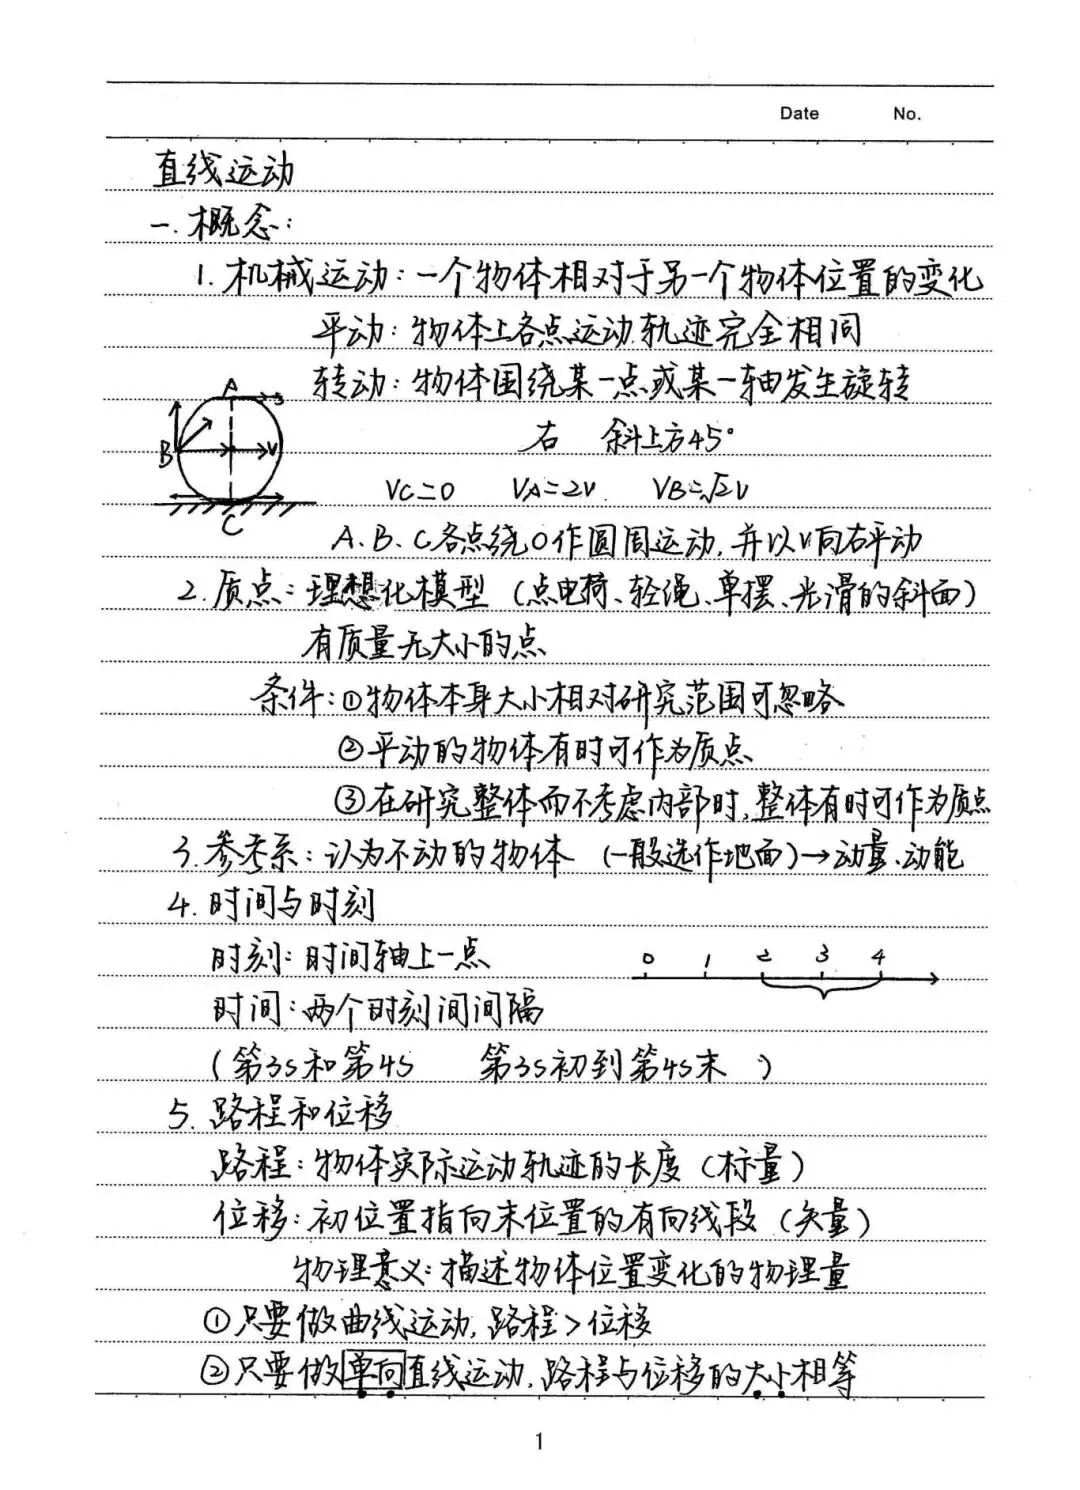 Date No.
直线运动
一.概念:
1.机械运动:一个物体相对于另一个物体位置的变化
平动:物体上各点运动轨迹完全相同
转动:物体围绕某一点或某一轴发生旋转
A
右 斜上方45°
B V
VC=0 VA=2V. VB=√2V
C
A.B、C各点绕O作圆周运动,并以V向右平动
2.质点:理想化模型(点电荷、轻绳、单摆、光滑的斜面)
有质量无大小的点
条件:①物体本身大小相对研究范围可忽略
②平动的物体有时可作为质点
③在研究整体而不考虑内部时,整体有时可作为质点
3.参考系:认为不动的物体 (一般选作地面)→动量、动能
4.时间与时刻
时刻:时间轴上一点
0 1 2 3 4
时间:两个时刻间间隔
(第3s和第4s 第3s初到第4s末 )
5.路程和位移
路程:物体实际运动轨迹的长度(标量)
位移:初位置指向末位置的有向线段(矢量)
物理意义:描述物体位置变化的物理量
①只要做曲线运动,路程>位移
②只要做单向直线运动,路程与位移的大小相等
1